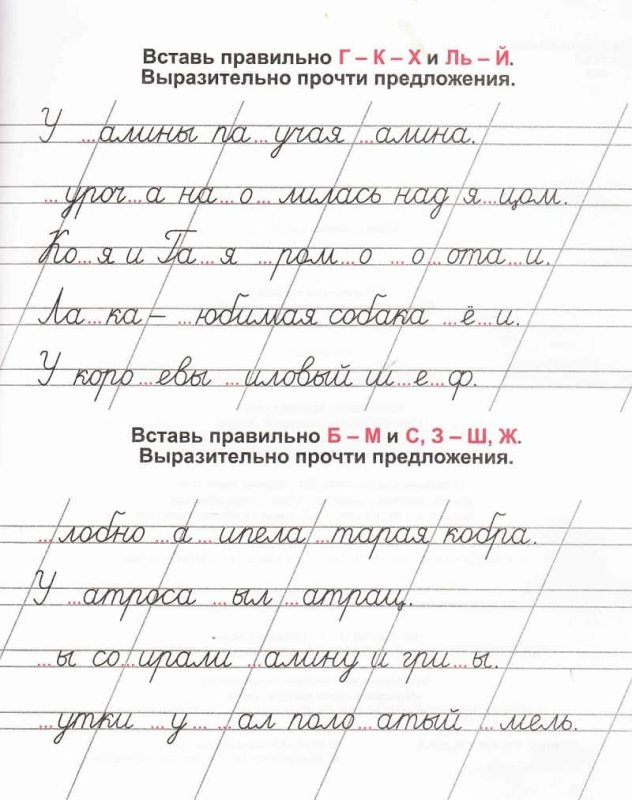 Вставь правильно Г – К – Х и Ль – Й.
Выразительно прочти предложения.
У ...амины па...учая ...алина.
...уроч...а на...о...лилась над я...цом.
Ко...я и Га...я ...ром...о ...о...ота...и.
Ла...ка – ...юбимая собака ...ё...и.
У коро...евы ...иловый ш...е...ф.
Вставь правильно Б – М и С, З – Ш, Ж.
Выразительно прочти предложения.
...лобно ...а...ипела ...тарая кобра.
У ...атроса ...ыл ...атрац.
...ы со...ирали ...алину и гри...ы.
...утки ...у... ...ал поло...атый ...мель.